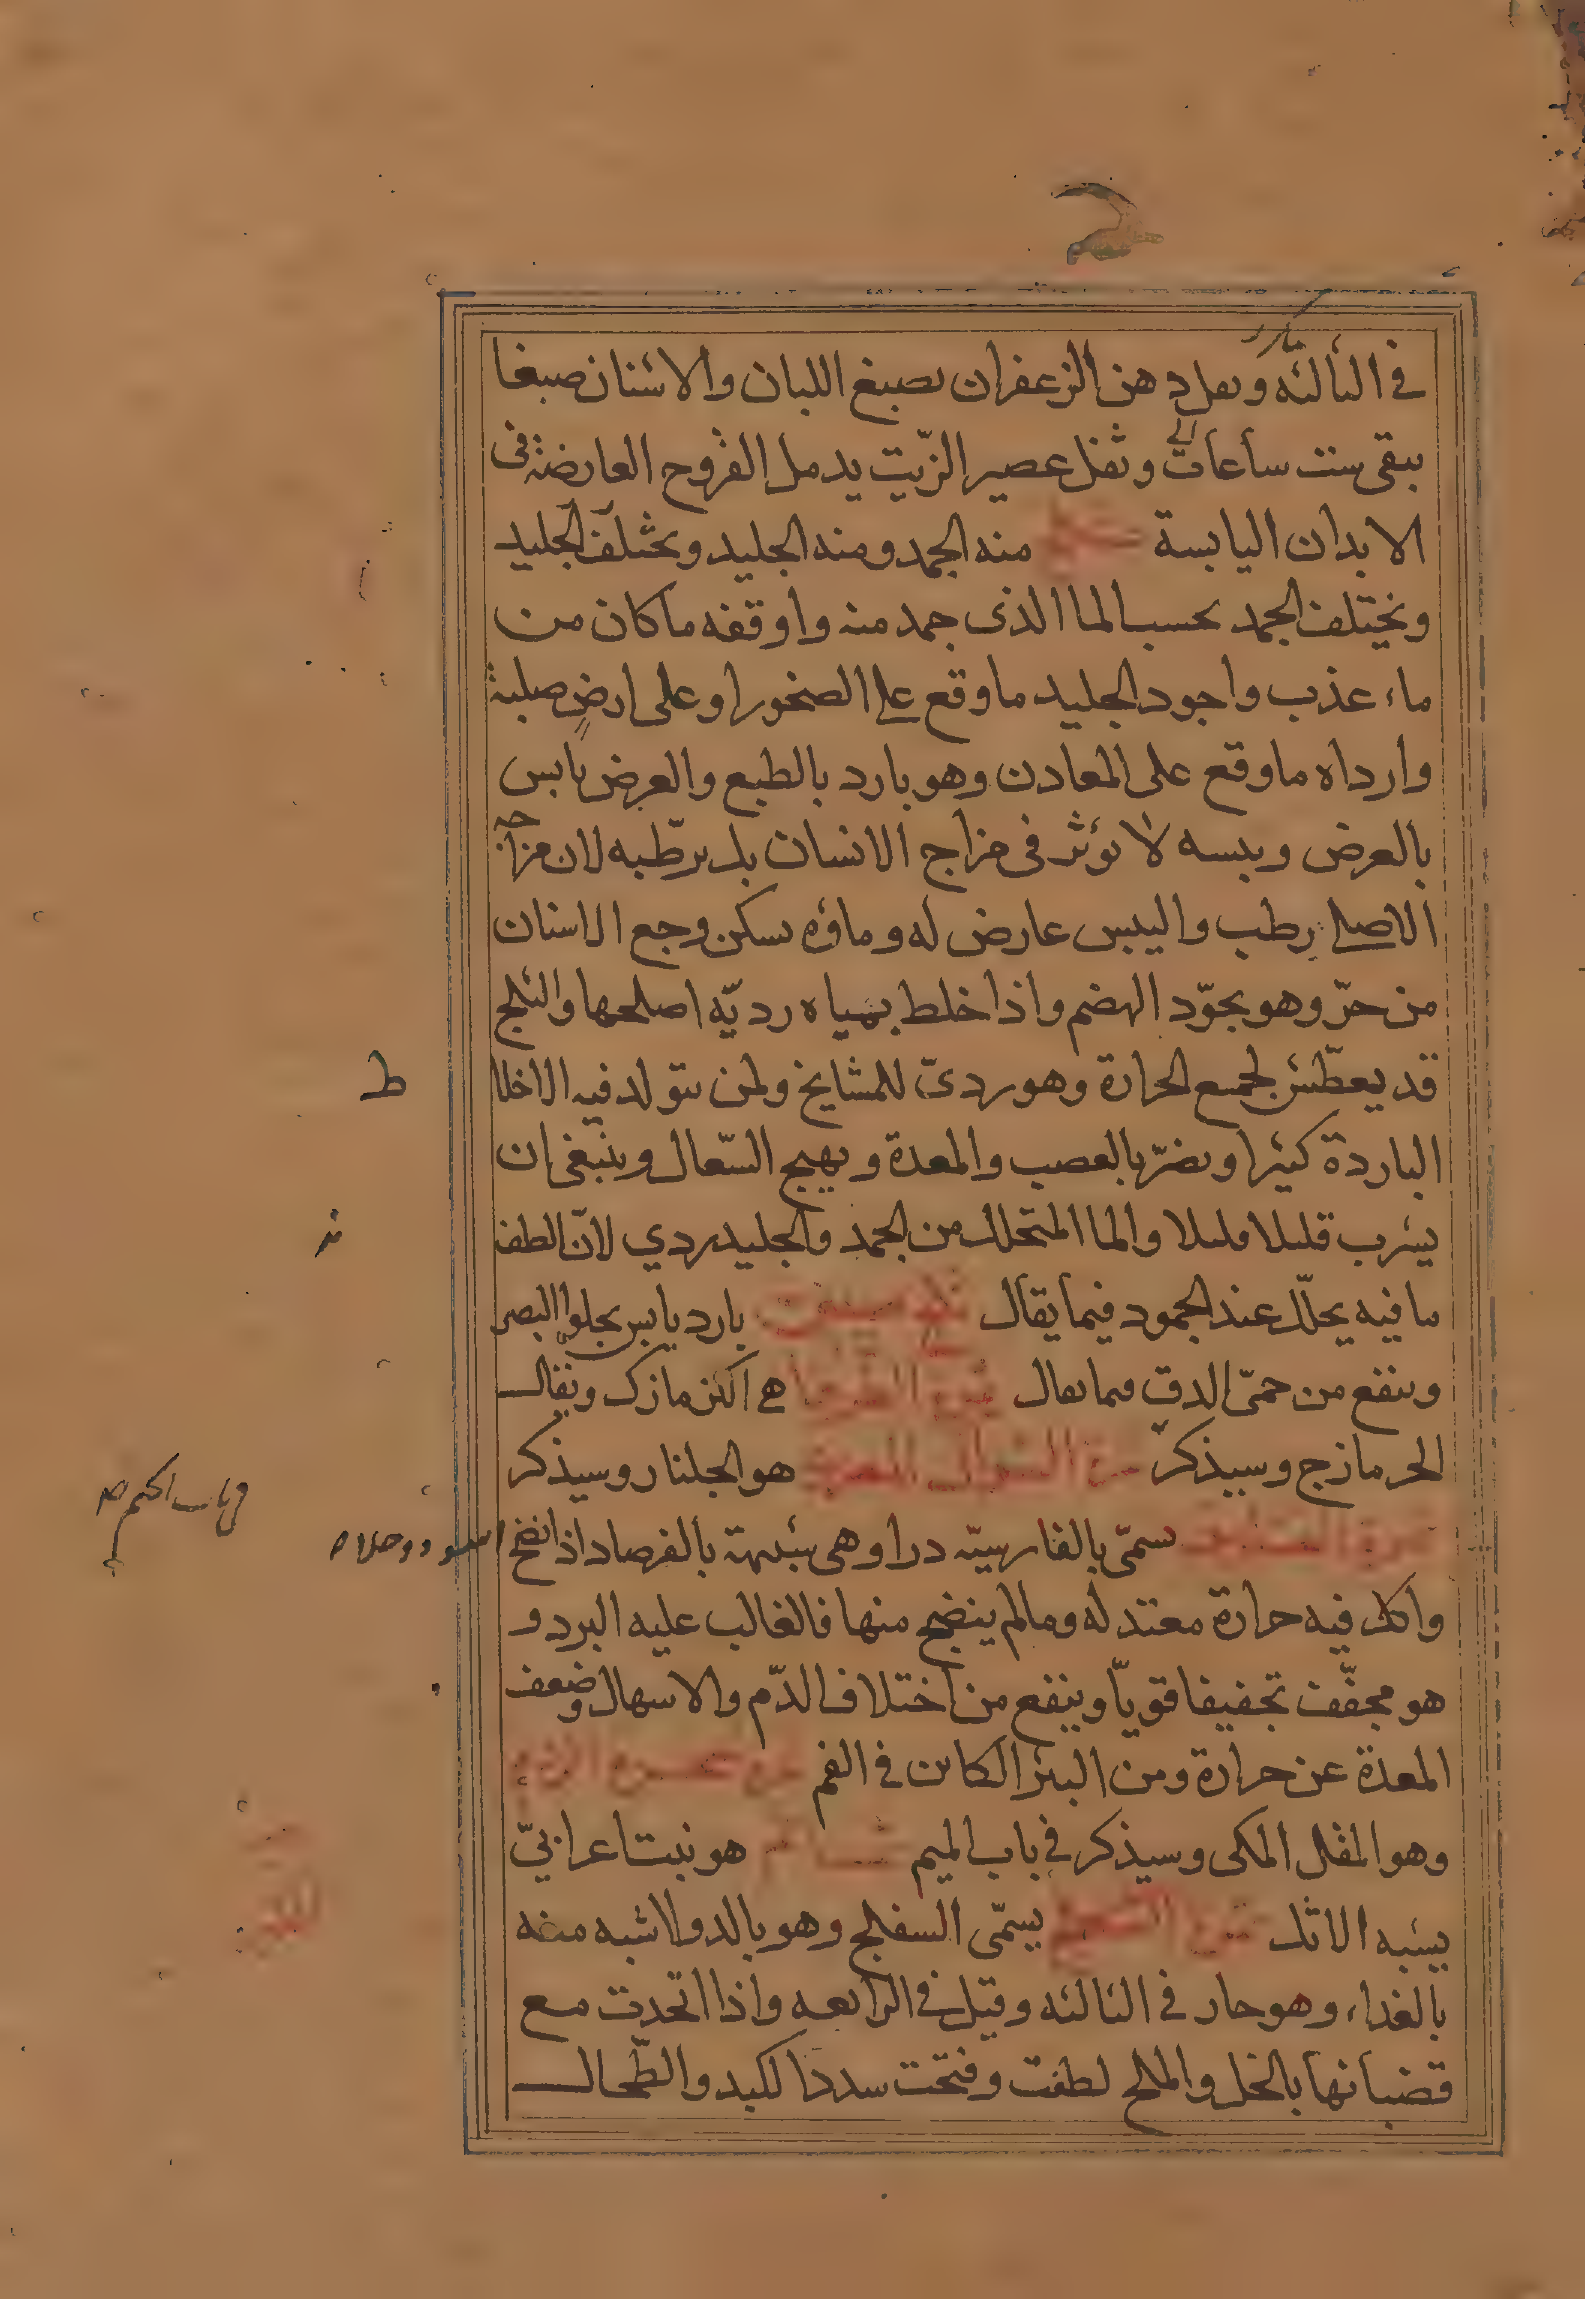 في الثالثه وثفل دهن الزعفران يصبغ اللبان والاسنان صبغا
يبقى ست ساعات وثفل عصير الزّيت يدمل القروح العارضة فى
الابدان اليابسة ثلج منه الجمد ومنه الجليد ويختلف الجليد
ويختلف الجمد بحسب الما الذى جمد منه واوقفه ما كان من
ماء عذب واجود الجليد ما وقع على الصخور او على ارض صلبة
وارداه ما وقع على المعادن وهو بارد بالطبع والعرض يابس
بالعرض ويبسه لا يؤثر فى مزاج الانسان بل يرطّبه لان مزاجه
الاصلى رطب واليبس عارض له وماؤه يسكن وجع الاسنان
من حرّ وهو يجوّد الهضم واذا خلط بمياه رديّه اصلحها والثلج
قد يعطّش لجمع الحرارة وهو ردىّ للمشايخ ولمن يتولد فيه الاخلا
ط
الباردة كثيرا ويضرّ بالعصب والمعدة ويهيج السّعال وينبغى ان
يشرب قليلا قليلا والما المتحلل من الجمد والجليد ردي لانّ الطف
ما فيه يحلّل عند الجمود فيما يقال ثلج صينى بارد يابس يجلوا البصر
وينفع من حمّى الدق فيما يقال ثمرة الطرفا هى الكزمازك ويقال
الحرمازج وسيذكر ثمرة الرمان البرى هو الجلنار وسيذكر
يسمّى بالفارسيّه درا وهى شبيهة بالفرصاد اذا نضج
واكل فيه حرارة معتدله وما لم ينضج منها فالغالب عليه البرد و
هو مجفّف تجفيفا قويّا وينفع من اختلاف الدّم والاسهال وضعف
المعدة عن حرارة ومن البثر الكاين فى الفم
وهو المقل المكى وسيذكر فى باب الميم ثمام هو نبت اعرابىّ
يشبه الاثل يسمّى السفلج وهو بالدوا اشبه منه
بالغداء وهو حار فى الثالثه وقيل فى الرابعه واذا اتخدت مع
قضبانها بالخل والملح لطفت وفتحت سدد الكبد والطّحال